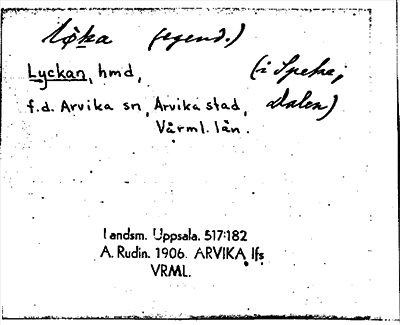 löka (egend.)
Lyckan, hmd, (i Speke,
f.d. Arvika sn, Arvika stad, Dalen)
Värml. län.
Landsm. Uppsala. 517:182
A. Rudin. 1906. ARVIKA lfs
VRML.